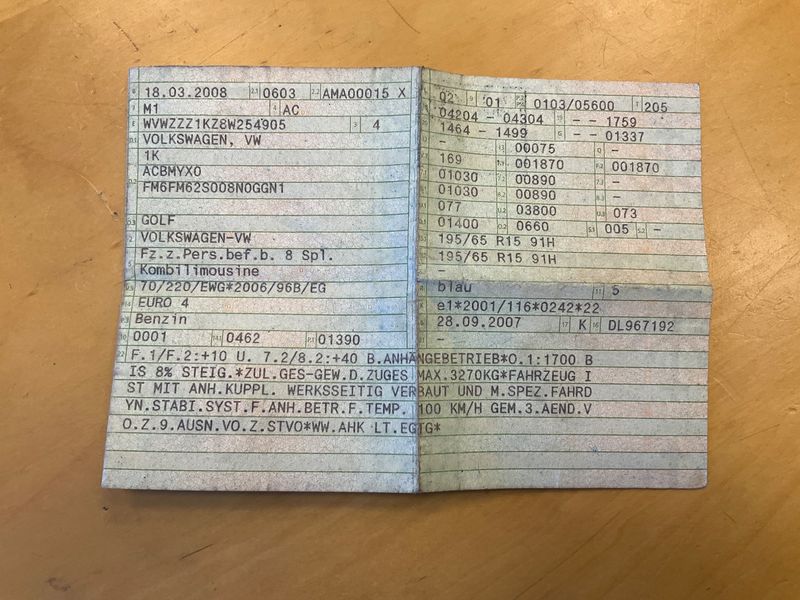 18.03.2008 0603 AMA00015 X
M1 AC
WVWZZZ1KZ8W254905 4
VOLKSWAGEN, VW
1K
ACBMYX0
FM6FM62S008N0GGN1
GOLF
VOLKSWAGEN-VW
Fz.z.Pers.bef.b. 8 Spl.
Kombilimousine
70/220/EWG*2006/96B/EG
EURO 4
Benzin
0001 0462 01390
02 '01 0103/05600 205
04204 - 04304 - - 1759
1464 - 1499 - - 01337
- 00075 -
169 001870 001870
01030 00890 -
01030 00890 -
077 03800 073
01400 0660 005 -
195/65 R15 91H
195/65 R15 91H
-
blau 5
e1*2001/116*0242*22
28.09.2007 K DL967192
-
F.1/F.2:+10 U. 7.2/8.2:+40 B.ANHÄNGEBETRIEB*O.1:1700 B
IS 8% STEIG.*ZUL.GES-GEW.D.ZUGES MAX.3270KG*FAHRZEUG I
ST MIT ANH.KUPPL. WERKSSEITIG VERBAUT UND M.SPEZ.FAHRD
YN.STABI.SYST.F.ANH.BETR.F.TEMP. 100 KM/H GEM.3.AEND.V
O.Z.9.AUSN.VO.Z.STVO*WW.AHK LT.EGTG*